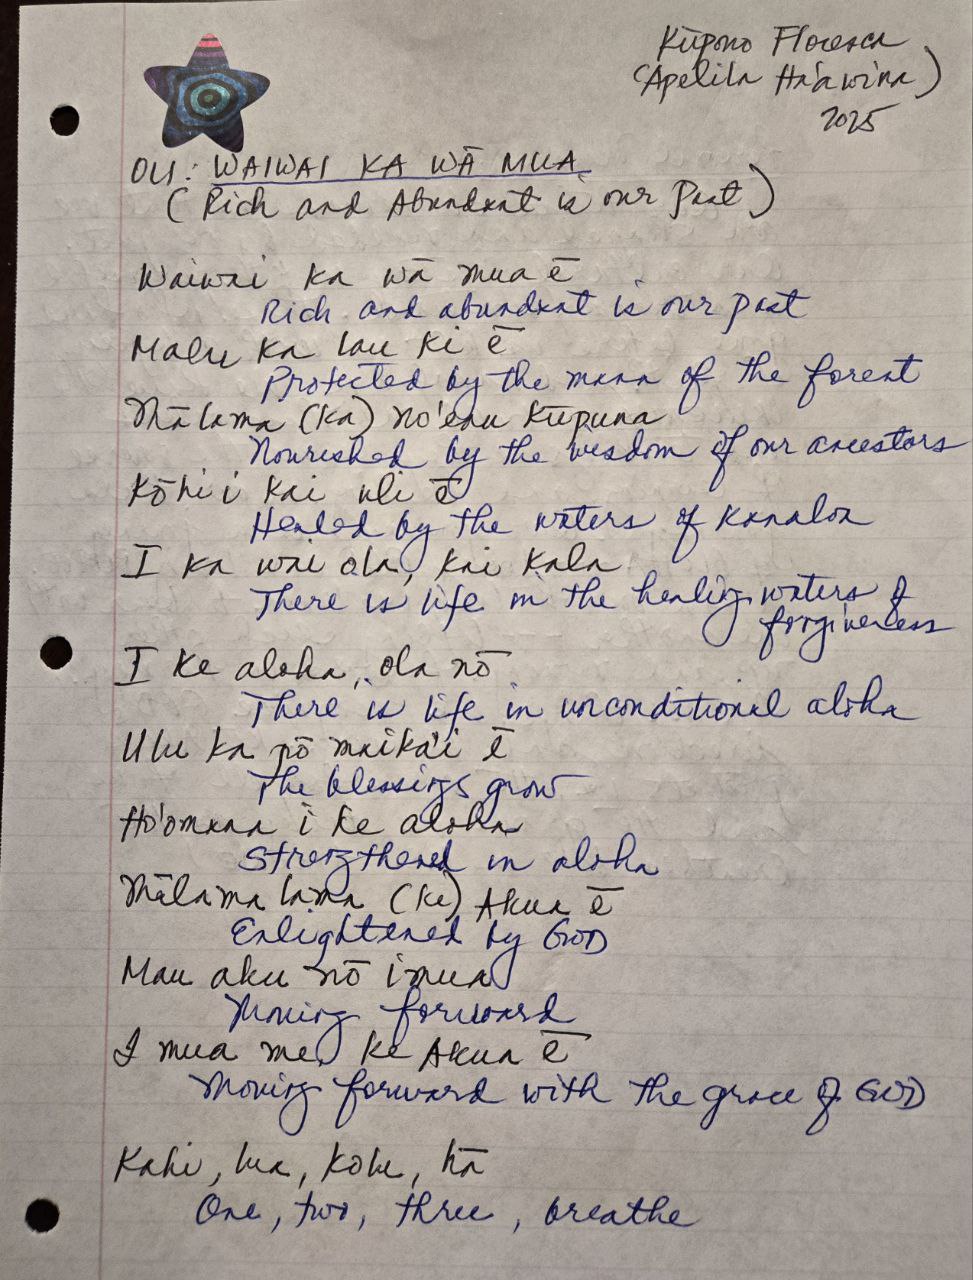 Kūpono Floresca
(Apelila Ha'awina)
2025
OLI: WAIWAI KA WĀ MUA
(Rich and Abundant is our Past)
Waiwai ka wā mua ē
Rich and abundant is our past
Malu ka lau ki ē
Protected by the mana of the forest
Mālama (ka) no'eau kūpuna
Nourished by the wisdom of our ancestors
Kōhi i kai uli ē
Healed by the waters of Kanaloa
I ka wai ola, kai kala
There is life in the healing waters of
forgiveness
I ke aloha, ola nō
There is life in unconditional aloha
Ulu ka pō maika'i ē
The blessings grow
Ho'omana i ke aloha
Strengthened in aloha
Mālama lama (ke) Akua ē
Enlightened by GOD
Mau aku nō i mua
Moving forward
I mua me ke Akua ē
Moving forward with the grace of GOD
Kahi, lua, kolu, hā
One, two, three, breathe